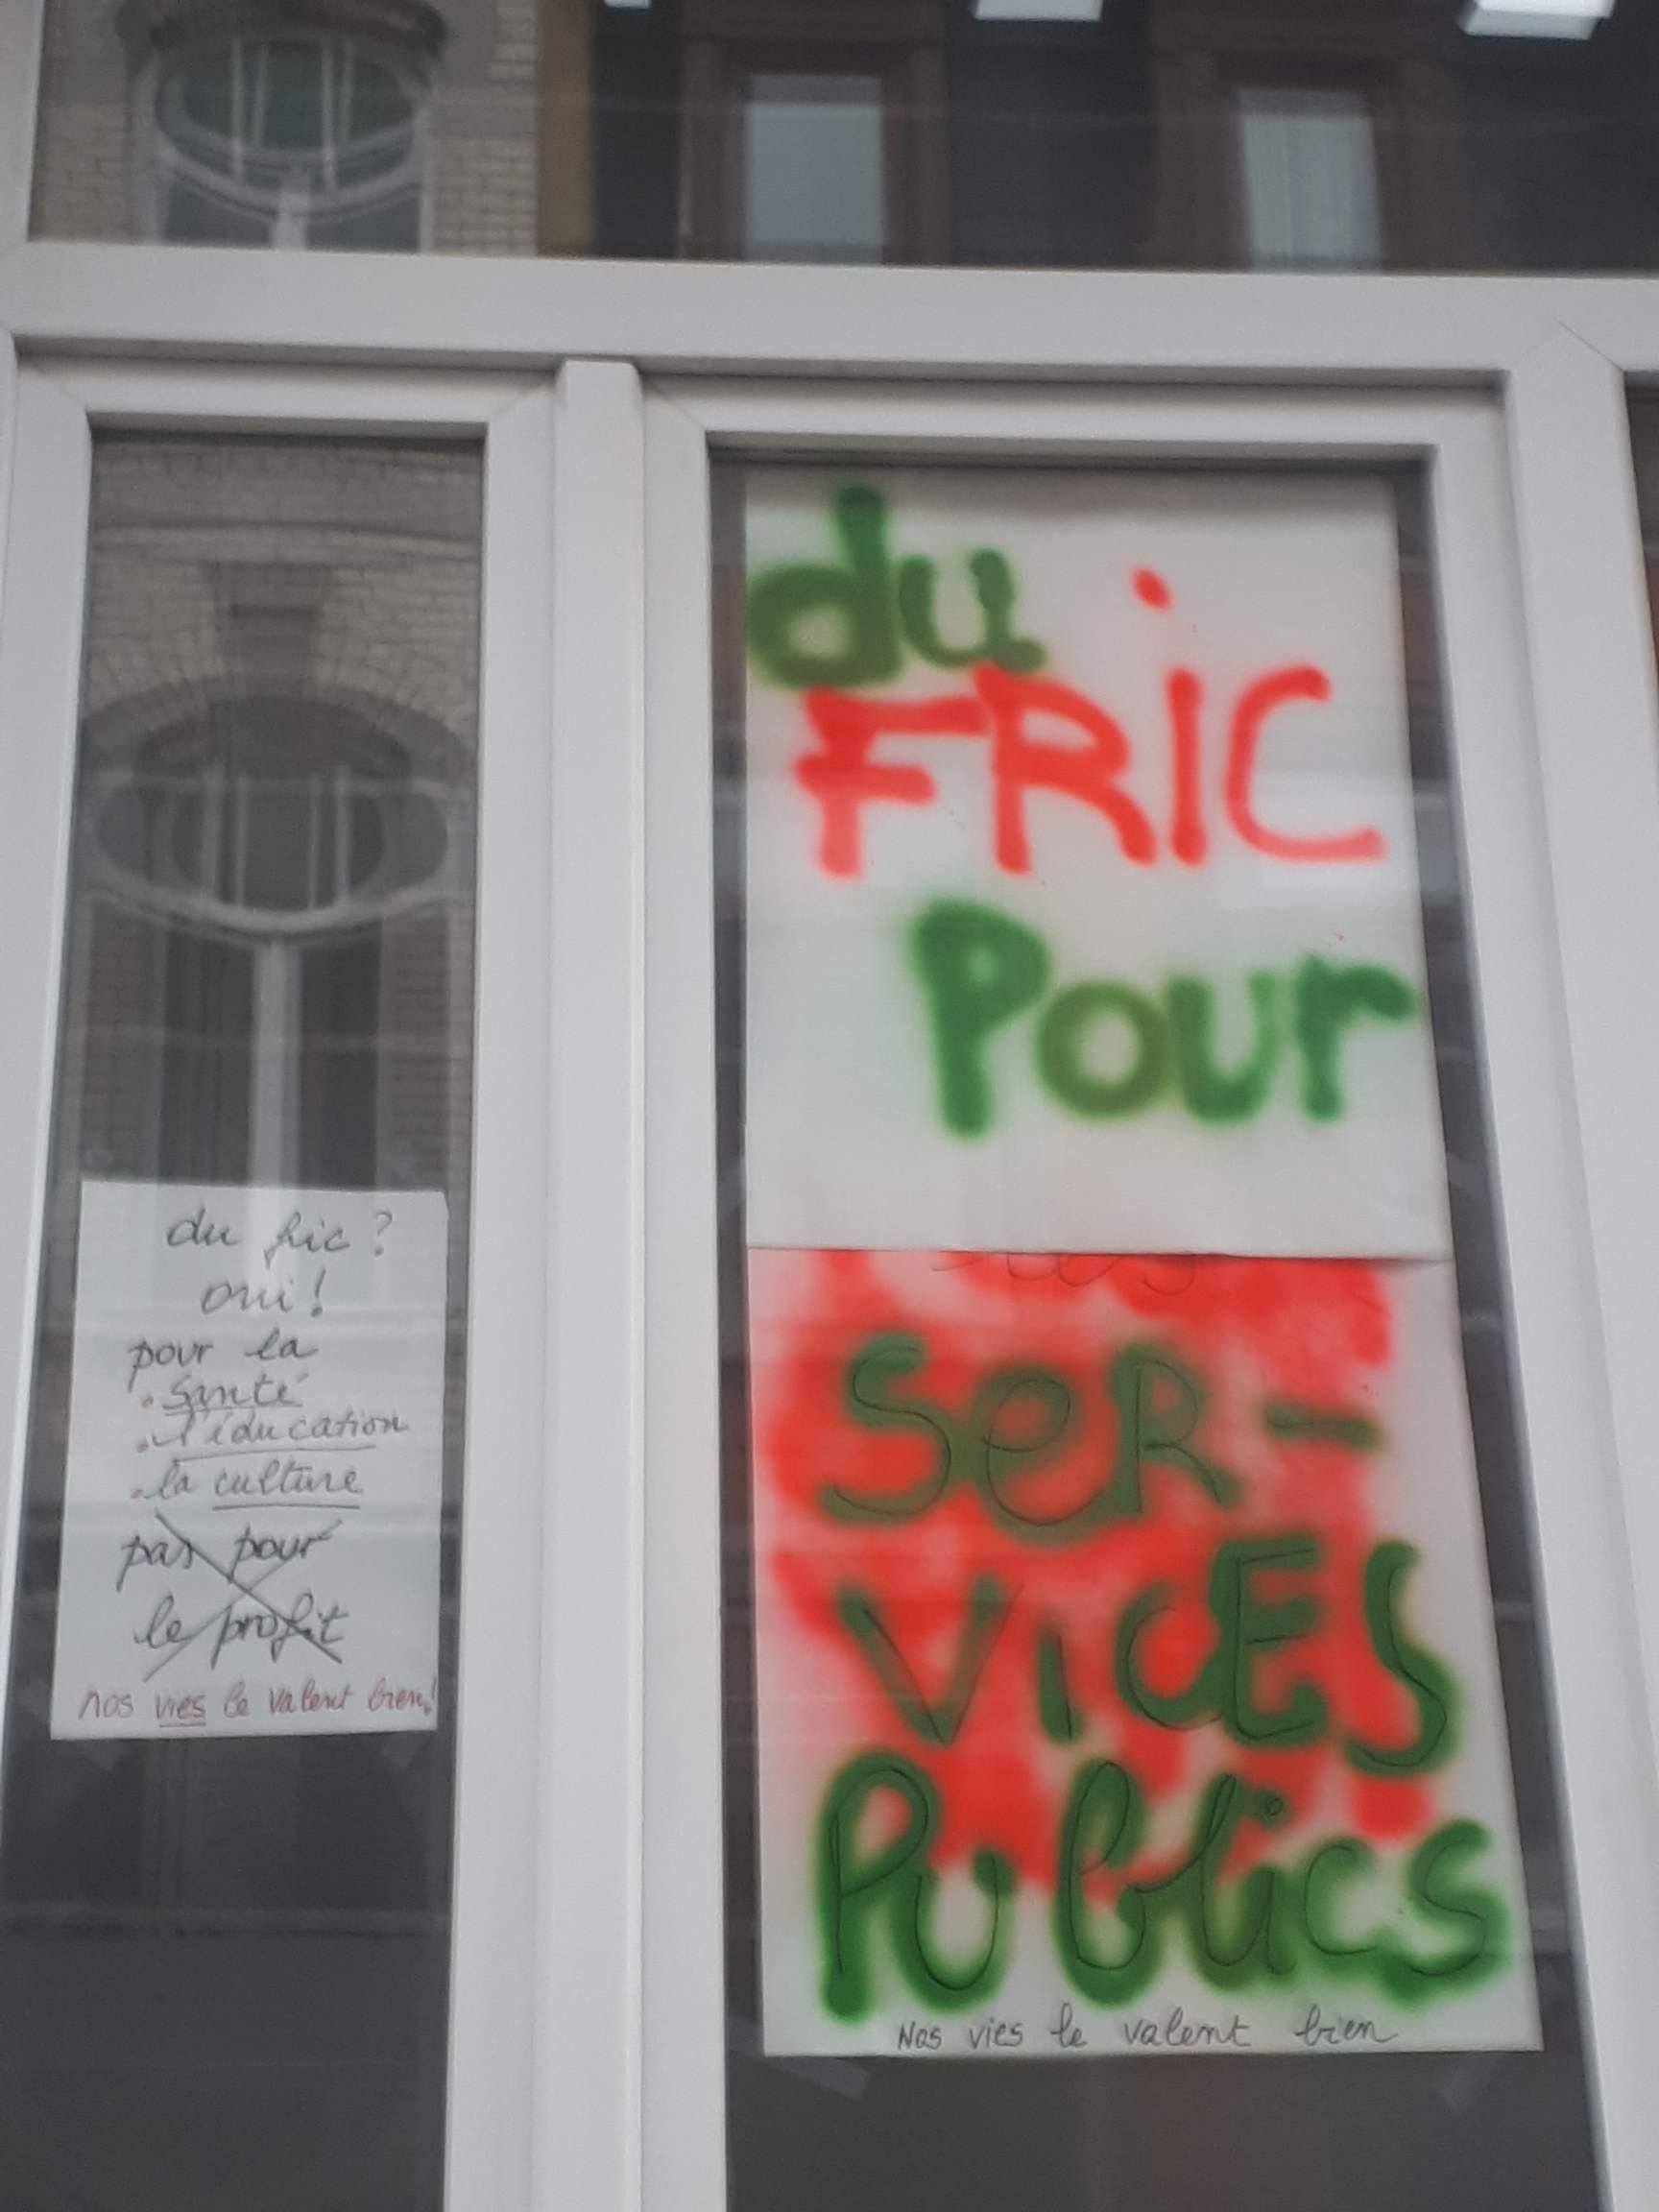 du fric ?
oui !
pour la
. santé
. l'éducation
. la culture
pas pour
le profit
nos vies le valent bien !
du
FRIC
Pour
les
SeR-
VICES
Publics
Nos vies le valent bien